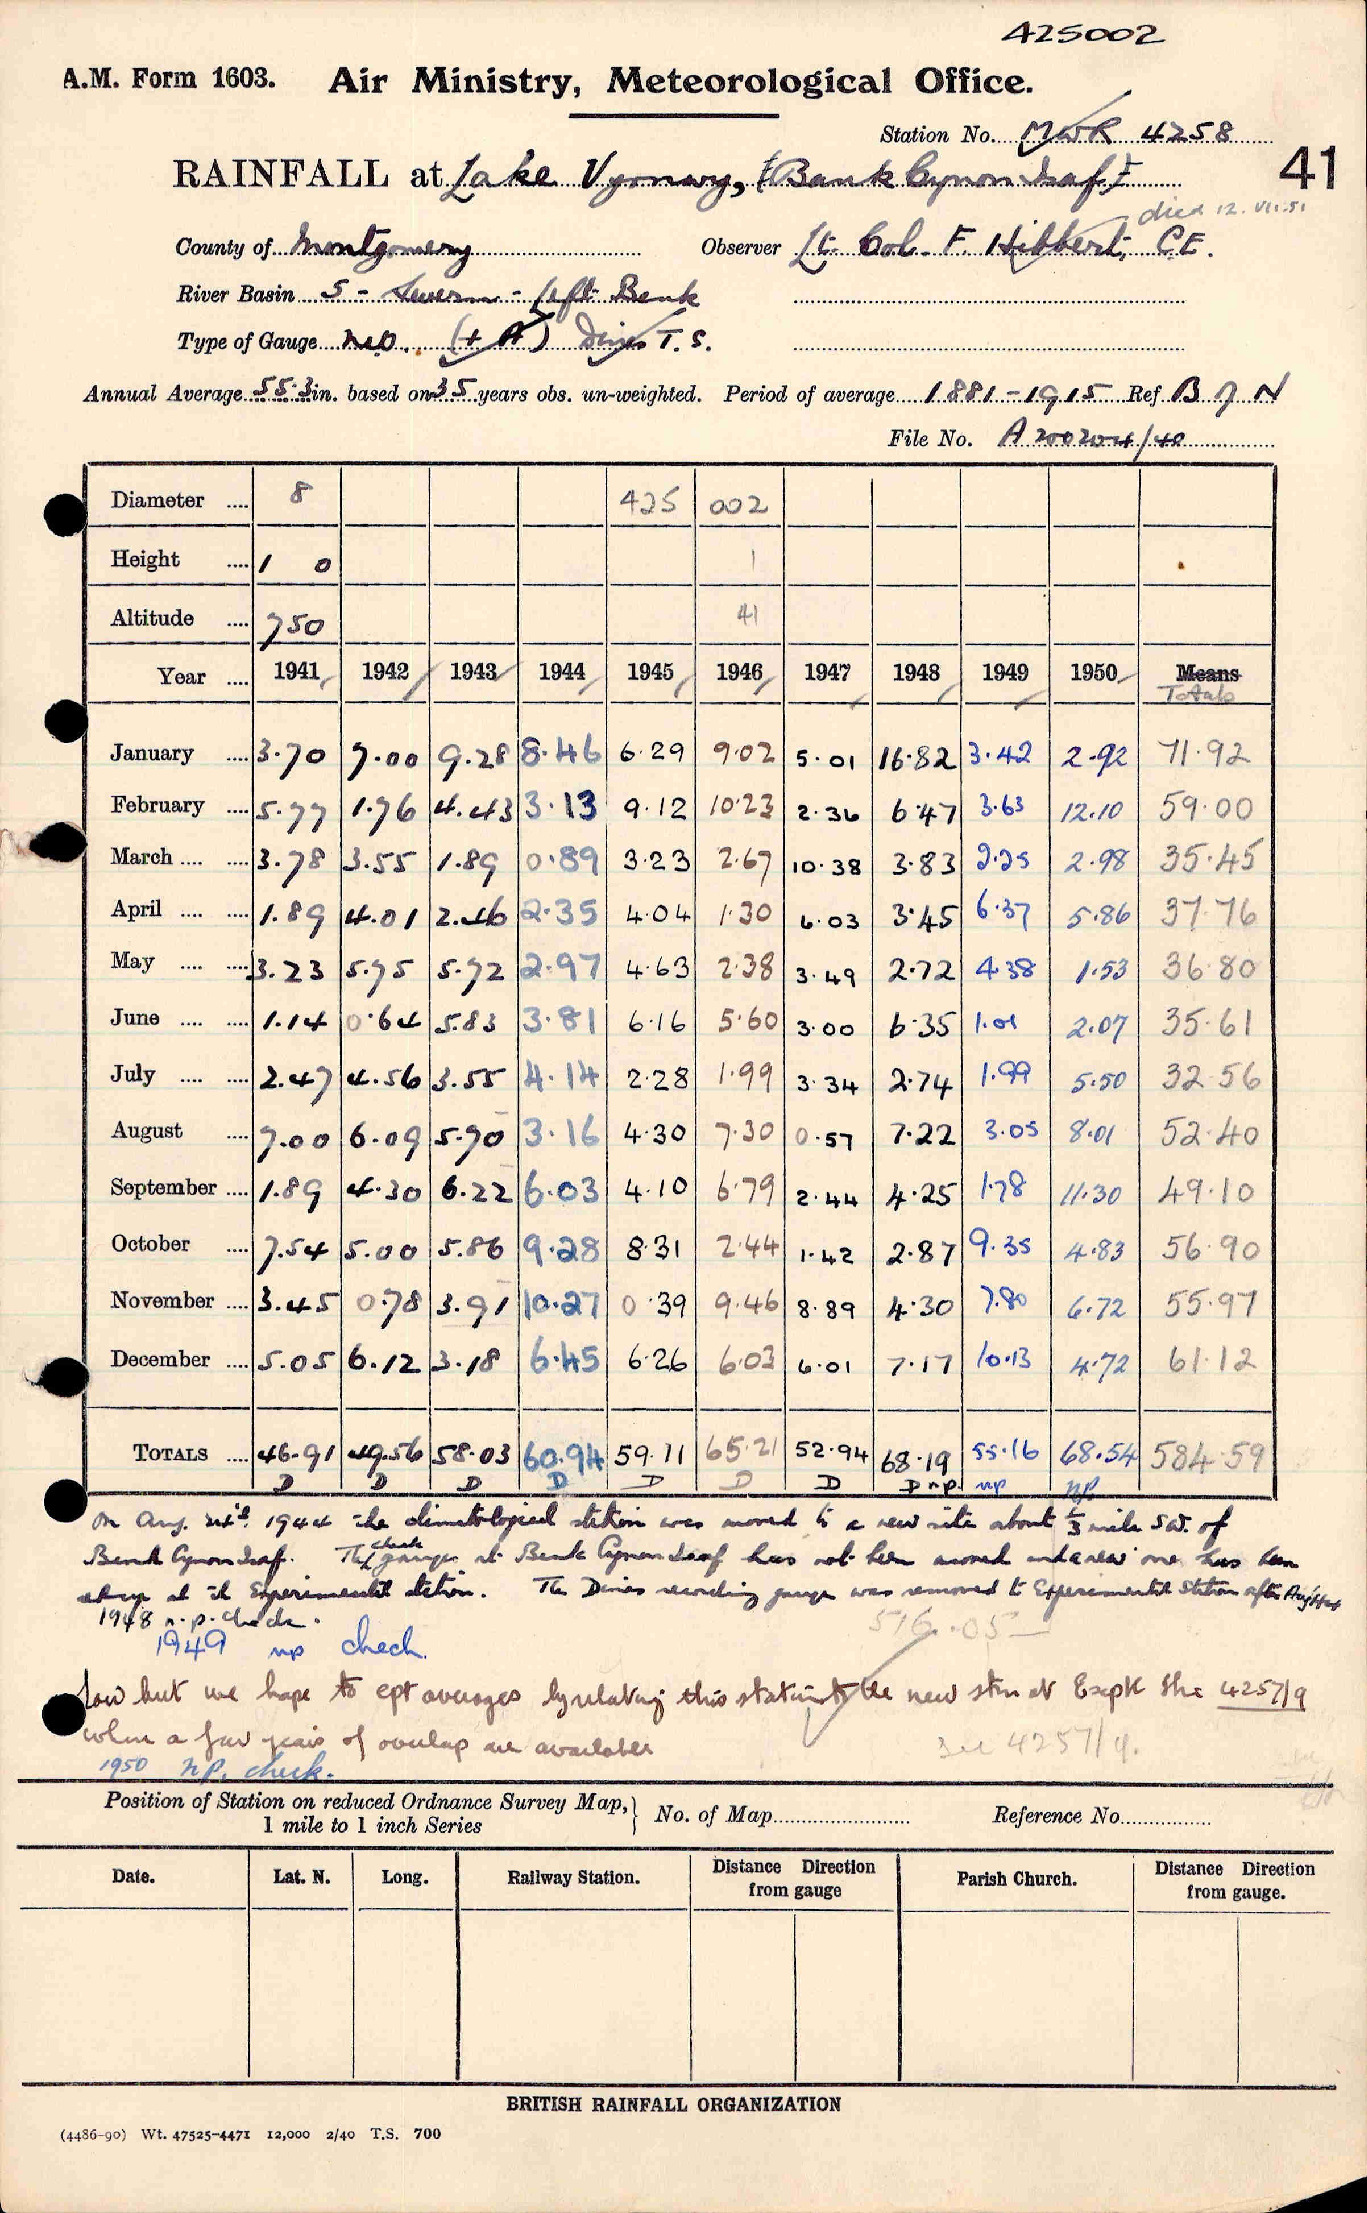 425002
A.M. Form 1603. Air Ministry, Meteorological Office.
Station No. MWR 4258
RAINFALL at Lake Vyrnwy, (Bank Cynon Isaf) 41
died 12.VII.51
County of Montgomery Observer Lt. Col. F. Hibbert, C.E.
River Basin 5 - Severn - left Bank
Type of Gauge M.O. (+ A) Dines T.S.
Annual Average 55.3 in. based on 35 years obs. un-weighted. Period of average 1881-1915 Ref B J N
File No. A200204/40
Diameter .... 8 425 002
Height .... 1 0 1
Altitude .... 750 41
Year .... 1941 1942 1943 1944 1945 1946 1947 1948 1949 1950 Means
Totals
January .... 3.70 7.00 9.28 8.46 6.29 9.02 5.01 16.82 3.42 2.92 71.92
February .... 5.77 1.76 4.43 3.13 9.12 10.23 2.36 6.47 3.63 12.10 59.00
March .... .... 3.78 3.55 1.89 0.89 3.23 2.67 10.38 3.83 2.25 2.98 35.45
April .... .... 1.89 4.01 2.46 2.35 4.04 1.30 6.03 3.45 6.37 5.86 37.76
May .... .... 3.23 5.75 5.72 2.97 4.63 2.38 3.49 2.72 4.38 1.53 36.80
June .... .... 1.14 0.64 5.83 3.81 6.16 5.60 3.00 6.35 1.01 2.07 35.61
July .... .... 2.47 4.56 3.55 4.14 2.28 1.99 3.34 2.74 1.99 5.50 32.56
August .... 7.00 6.09 5.70 3.16 4.30 7.30 0.57 7.22 3.05 8.01 52.40
September .... 1.89 4.30 6.22 6.03 4.10 6.79 2.44 4.25 1.78 11.30 49.10
October .... 7.54 5.00 5.86 9.28 8.31 2.44 1.42 2.87 9.35 4.83 56.90
November .... 3.45 0.78 3.91 10.27 0.39 9.46 8.89 4.30 7.80 6.72 55.97
December .... 5.05 6.12 3.18 6.45 6.26 6.03 6.01 7.17 10.13 4.72 61.12
TOTALS .... 46.91 49.56 58.03 60.94 59.11 65.21 52.94 68.19 55.16 68.54 584.59
D D D D D D D D n.p. np np.
On Aug. 1944 the climatological station was moved to a new site about 1/3 mile SW. of
Bank Cynon Isaf. The check gauge at Bank Cynon Isaf has not been moved and a new one has been
set up at the Experimental station. The Dines recording gauge was removed to Experimental Station after Aug/44
1948 n.p. check.
516.05
1949 np check.
low but we hope to get averages by relating this station to the new stn at Exptl Stn 4257/9
when a few years of overlap are available
see 4257/9.
1950 np. check.
Position of Station on reduced Ordnance Survey Map, 1 mile to 1 inch Series } No. of Map.......... Reference No..........
Date. Lat. N. Long. Railway Station. Distance Direction from gauge Parish Church. Distance Direction from gauge.
BRITISH RAINFALL ORGANIZATION
(4486-90) Wt. 47525-4471 12,000 2/40 T.S. 700